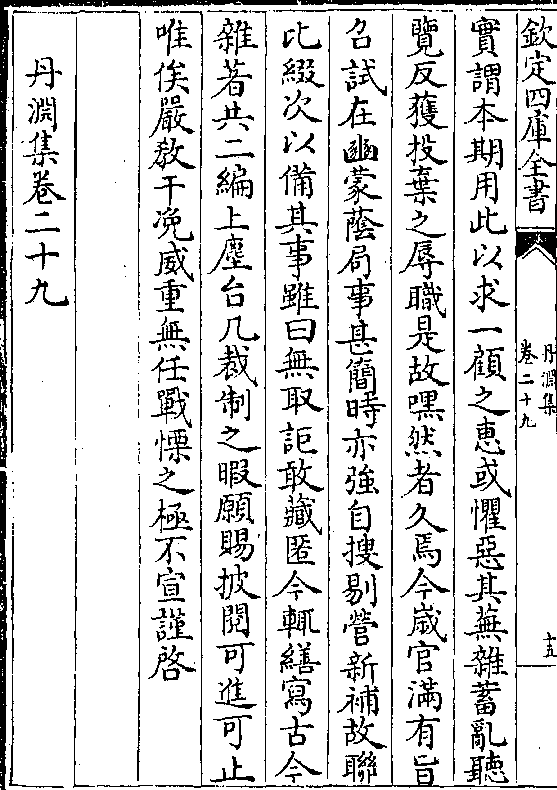 欽定四庫全書
丹淵集
卷二十九
十五
實謂本期用此以求一顧之惠或懼惡其蕪雜蓄亂聽
覽反獲投棄之辱職是故嘿然者久焉今嵗官滿有旨
召試在幽蒙蔭局事甚簡時亦強自搜剔營新補故聯
比綴次以備其事雖曰無取詎敢藏匿今輒繕寫古今
雜著共二編上塵台几裁制之暇願賜披閱可進可止
唯俟嚴教干凂威重無任戰慄之極不宣謹啓
丹淵集卷二十九